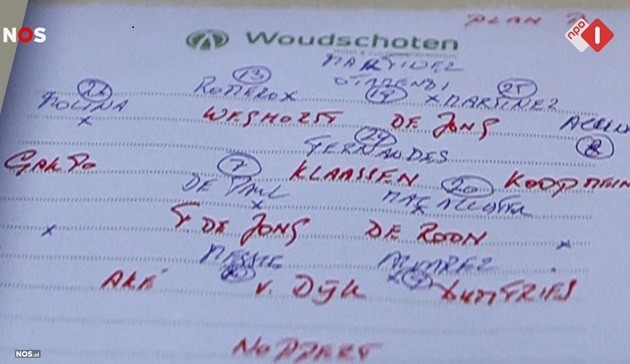 PLAN
NOS
npo 1
Woudschoten
MARTINEZ
26 MOLINA
13 ROMERO X
OTAMENDI 19
25 X MARTINEZ
WEGHORST
DE JONG
8
24 FERNANDES
GAKPO
KLAASSEN
KOOPMEIN
7 DE PAUL
20 MAC ALLISTER
F DE JONG
DE ROON
MESSIE
ALVAREZ
AKÉ
V. DIJK
DUMFRIES
NOPPERT
NOS.nl